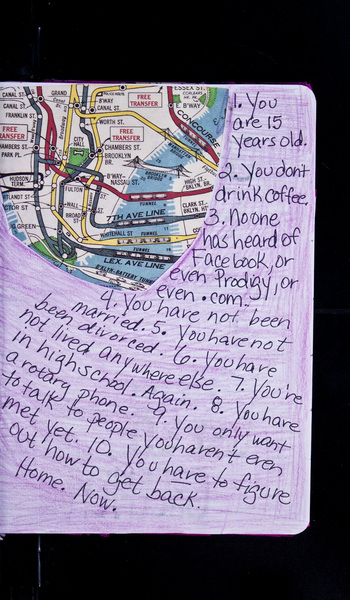 CANAL ST.
CANAL ST.
FRANKLIN ST.
FREE
CHAMBERS ST.
PARK PL.
GRAND
B'WAY
CANAL ST.
WORTH ST.
FREE
TRANSFER
ESSEX ST.
E. B'WAY
CONCOURSE
FREE
TRANSFER
CITY
HALL
CHAMBERS ST.
BROOKLYN
BR.
HUDSON
TERM.
FULTON
B'WAY-
NASSAU ST.
BROOKLYN
BRIDGE
HIGH ST.-
BKLYN. BR.
TUNNEL
CLARK ST.
BKLYN. H
TH AVE LINE
TUNNEL
WHITEHALL ST.
WALL
BROAD
ST.
LEX. AVE LINE
B'KLYN-BATTERY TUNNEL
1. You
are 15
years old.
2. You don't
drink coffee.
3. No one
has heard of
Facebook, or
even Prodigy, or
even .com.
4. You have not been
married. 5. You have not
been divorced. 6. You have
not lived anywhere else. 7. You're
in high school. Again. 8. You have
a rotary phone. 9. You only want
to talk to people you haven't even
met yet. 10. You have to figure
out how to get back.
Home. Now.